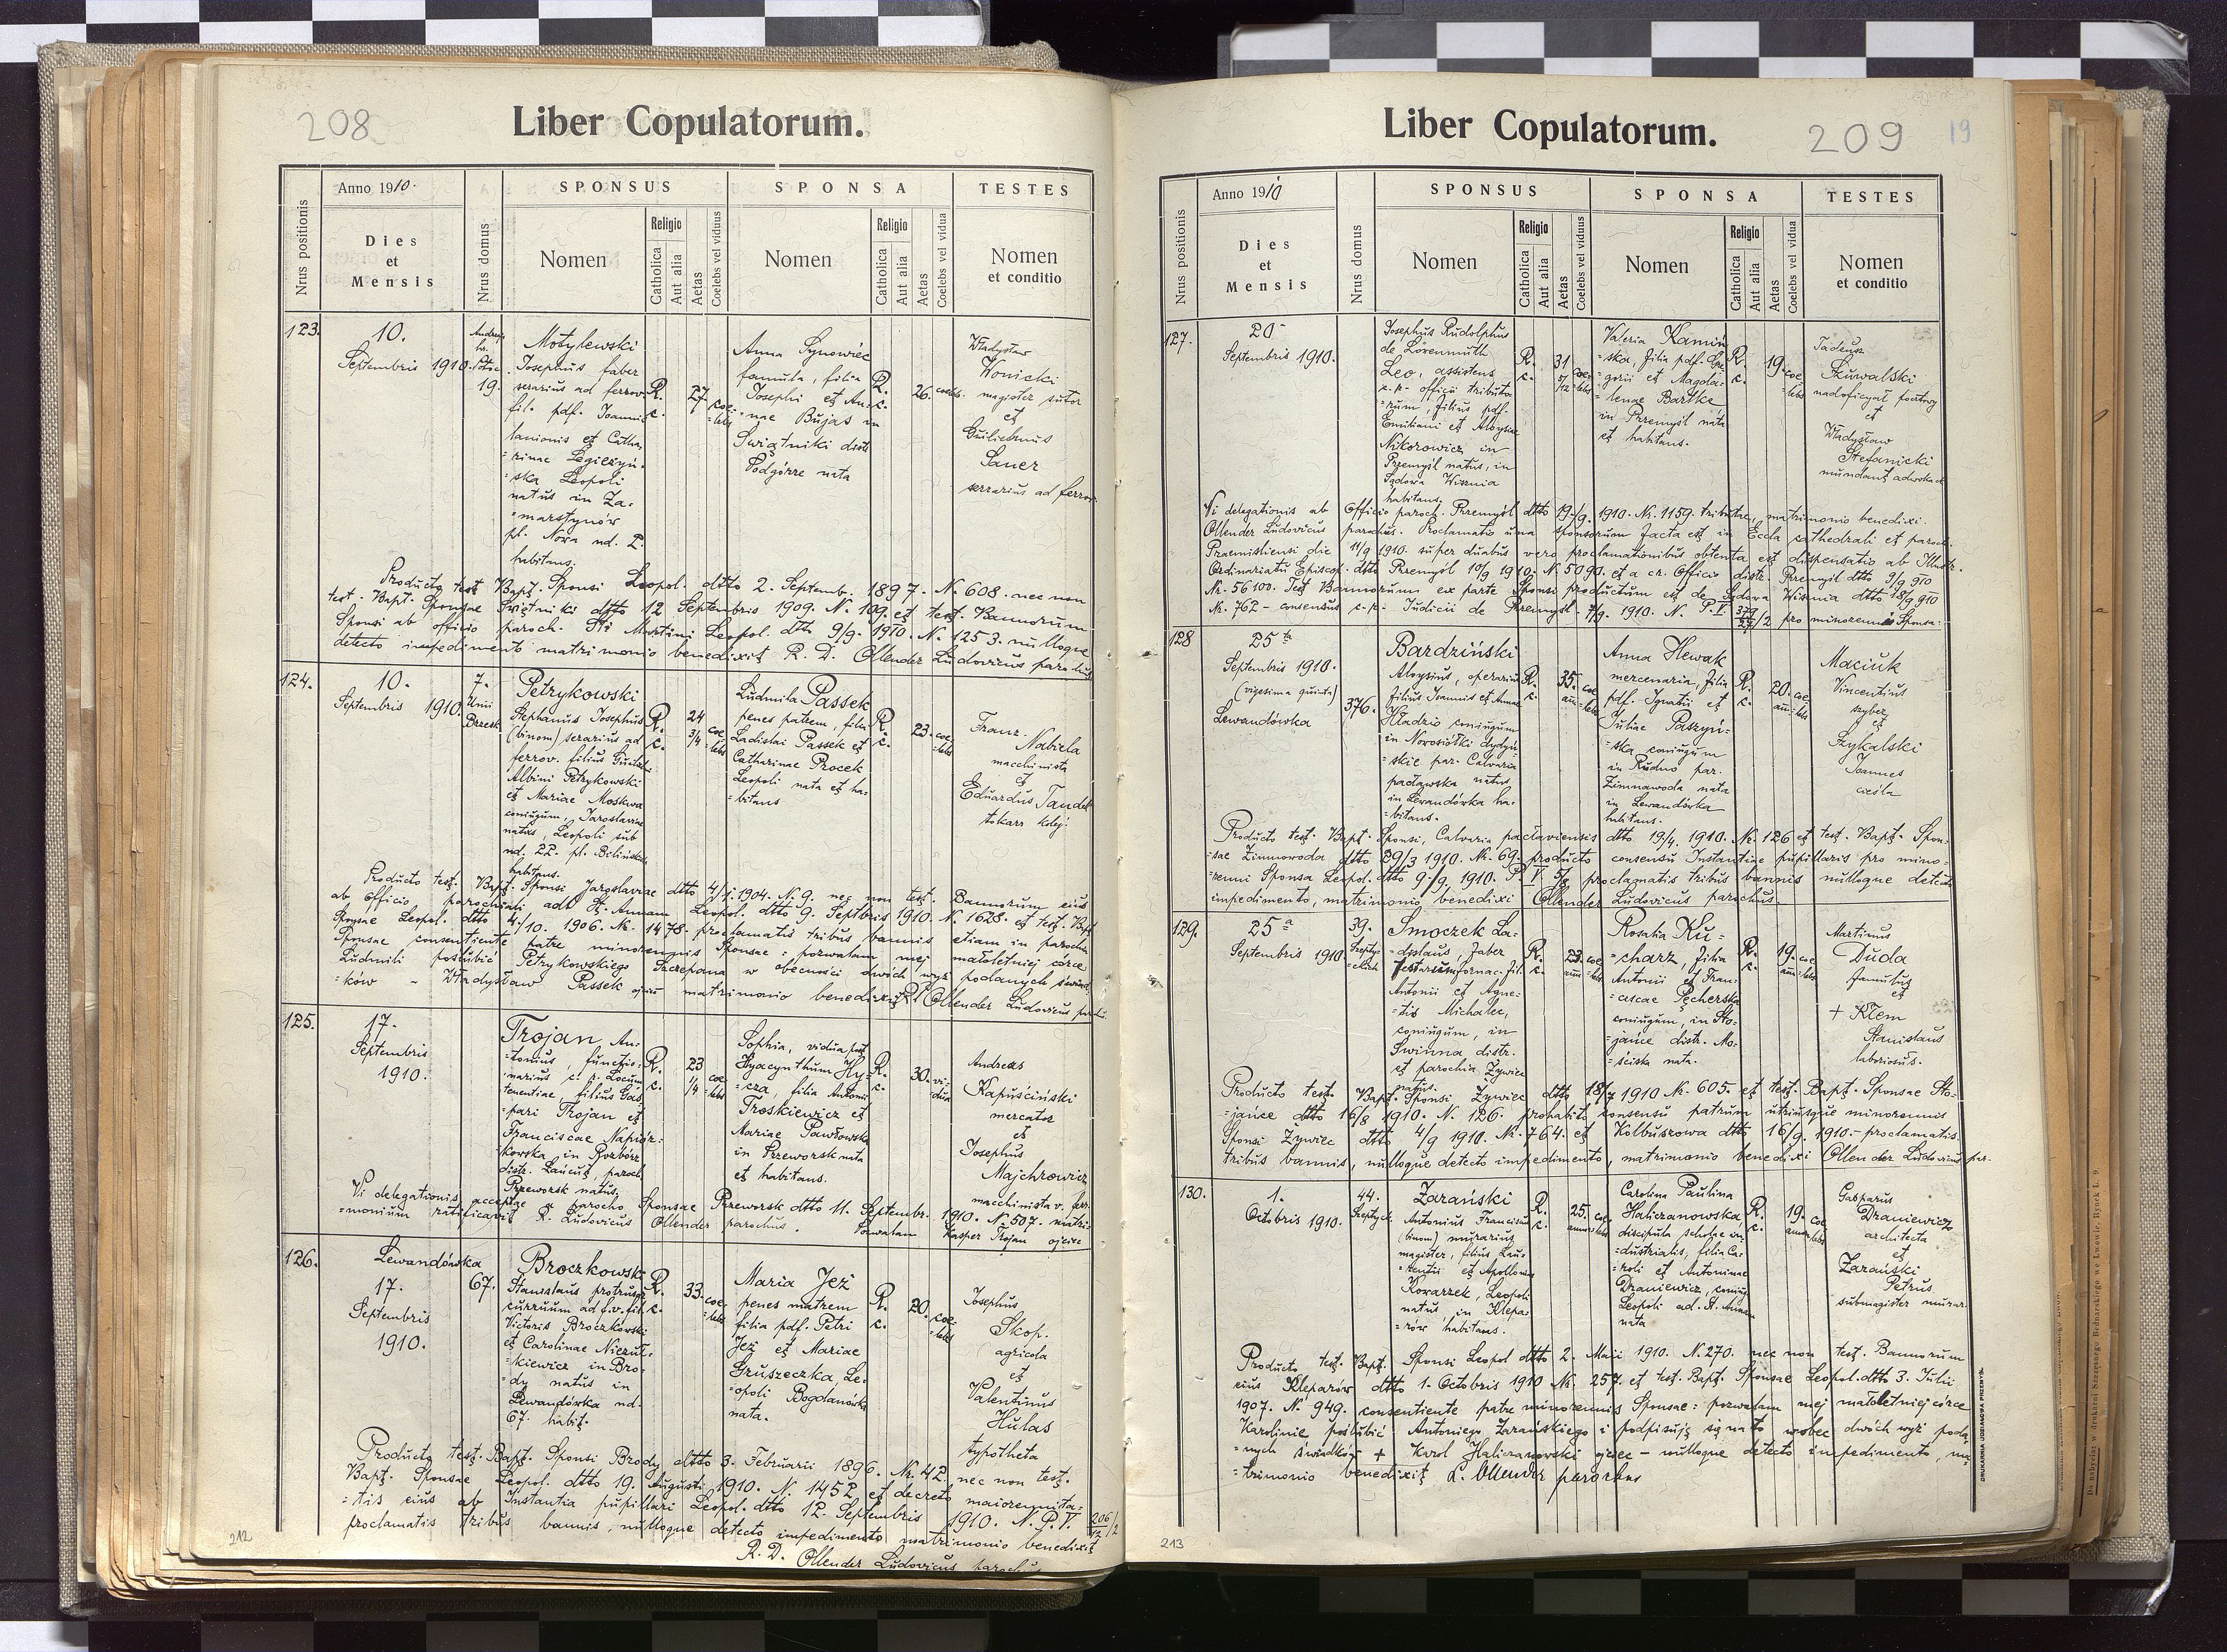 208
Liber Copulatorum.
Nrus positionis
Anno 1910.
Dies
et
Mensis
Nrus domus
SPONSUS
Nomen
Religio
Catholica
Aut alia
Aetas
Coelebs vel viduus
SPONSA
Nomen
Religio
Catholica
Aut alia
Aetas
Coelebs vel vidua
TESTES
Nomen
et conditio
123.
10.
Septembris 1910.
19.
Motylewski
Josephus faber
serarius ad ferrov.
fil. pdf. Joannis
lanionis et Catha
=rinae Legieżyń=
=ska Leopoli
natus in Za=
=marstynów
pl. Nova nd. 2.
habitans.
R.
c.
27
coe
=lebs
Anna Synowiec
famula, filia
Josephi et An=
nae Bujas in
Świątniki distr
Podgórze nata
R.
c.
26.
coelebs.
Władysław
Wonicki
magister sutor
et
Guilielmus
Sauer
serrarius ad ferrov.
Producto test. Bapt. Sponsi Leopol. dtto 2. Septemb. 1897. N. 608. nec non
test. Bapt. Sponsae Świątniki dtto 12 Septembris 1909. N. 109. et test. Bannorum
Sponsi ab officio paroch. Sti Martini Leopol. dtto 9/9. 1910. N. 1253. nulloque
detecto impedimento matrimonio benedixit R. D. Ollender Ludovicus parochus
124.
10.
Septembris 1910.
7.
Unii
Brzesk
Petrykowski
Stephanus Josephus
(binom) serarius ad
ferrov. filius
Albini Petrykowski
et Mariae Moskwa
coniugum, Jaroslaviae
natus, Leopoli sub
nd. 22. pl. Bilińskich
habitans.
R.
c.
24
3/4
coe
=lebs
Ludmila Passek
penes patrem, filia
Ladislai Passek et
Catharinae Procek
Leopoli nata et ha=
=bitans
R.
c.
23.
coe
=lebs
Franz.
Nabiela
macchinista
et
Eduardus Tandek
tokarz kolej.
Producto test. Bapt. Sponsi Jaroslaviae dtto 4/1. 1904. N. 9. nec non test. Bannorum eius
ab officio parochiali adt St. Annam Leopol. dtto 9. Septbris 1910. N. 1628. et test. Bapt
Sponsae Leopol. dtto 4./10. 1906. Nr. 1478. proclamatis tribus bannis etiam in parochia
Sponsae consentiente patre minorennis Sponsae: pozwalam mej małoletniej córce
Ludmili poślubić Petrykowskiego Szczepana w obecności dwóch wyż podanych świad
=ków - Władysław Passek ojciec matrimonio benedixit R. Ollender Ludovicus
125.
17.
Septembris
1910.
Trojan An=
=tonius, functio=
narius c. r. Locum
tenentiae filius Gas
=pari Trojan et
Franciscae Napiór=
kowska in Rozbórz
distr. Łańcut, paroch.
Przeworsk natus.
R.
c.
23
1/4
coe
=lebs
Sophia, vidua post
Hyacynthum Hy=
=cza, filia Antonii
Troskiewicz et
Mariae Pawłowska
in Przeworsk nata
et habitans.
R.
c.
30.
vi=
dua
Andreas
Kapuściński
mercator
et
Josephus
Majchrowicz
macchinista v. ferr.
Vi delegationis acceptae a parocho Sponsae Przeworsk dtto 11. Septembr. 1910. N. 507. matri=
=monium ratificavit R. Ludovicus Ollender parochus. Pozwalam Kasper Trojan ojciec
126.
Lewandówka
17.
Septembris
1910.
67.
Broczkowski
Stanislaus protrusor
curruum ad fer. fil.
Victoris Broczkowski
et Carolinae Niezul=
=kiewicz in Bro=
=dy natus in
Lewandówka nd.
67. habit.
R.
c.
33.
coe
=lebs
Maria Jeż
penes matrem
filia pdf. Petri
Jeż et Mariae
Gruszeczka, Le=
=opoli Bogdanówka
nata.
R.
c.
20.
coe
=lebs
Josephus
Skop.
agricola
et
Valentinus
Hulas
typotheta
Producto test. Bapt. Sponsi Brody dtto 3. Februarii 1896. Nr. 42. nec non test.
Bapt. Sponsae Leopol. dtto 19. Augusti 1910. N. 1452 et decreto maiorennita=
=tis eius ab Instantia pupillari Leopol. dtto 12. Septembris 1910. N. P.V. 206/12/2
proclamatis tribus bannis, nulloque detecto impedimento matrimonio benedixit
R. D. Ollender Ludovicus parochus
212
Liber Copulatorum.
209
19
Nrus positionis
Anno 1910
Dies
et
Mensis
Nrus domus
SPONSUS
Nomen
Religio
Catholica
Aut alia
Aetas
Coelebs vel viduus
SPONSA
Nomen
Religio
Catholica
Aut alia
Aetas
Coelebs vel vidua
TESTES
Nomen
et conditio
127.
20
Septembris 1910.
Josephus Rudolphus
de Lörenmuth
Leo, assistens
c. r. officii tributo
=rum, filius pdf.
Emiliani et Aloysae
Nikorowicz in
Przemyśl natus, in
Sądowa Wisznia
habitans.
R.
c.
31
5/12
coe
=lebs
Valeria Kamiń
=ska, filia pdf. Gre
=gorii et Magda=
=lenae Bartke
in Przemyśl nata
et habitans.
R.
c.
19.
coe
=lebs
Tadeusz
Szuwalski
nadoficyał poctowy
et
Władysław
Stefanicki
mundant adwokack
Vi delegationis ab Officio paroch. Przemyśl dtto 19./9. 1910. N. 1159. tributae, matrimonio benedixi.
Ollender Ludovicus parochus. Proclamatio una sponsorum facta est in Eccla cathedrali et paroch.
Praemisliensi die 11/9 1910. super duabus vero proclamationibus obtenta est dispensatio ab Illustr.
Ordinariatu Episcop. dtto Przemyśl 10/9 1910. N 5090. et a cr. Officio distr. Przemyśl dtto 9/9 910
Nr. 56100. Test Bannorum ex parte Sponsi productum est de Sądowa Wisznia dtto 18/9 910
Nr. 762 - consensus c. r. Judicii de Przemyśl. 7/9. 1910. N. P. V. 379/27/2 pro minorennis Sponsa.
128
25ta
Septembris 1910.
(vigesima quinta)
Lewandówka
376.
Bardziński
Aloysius, operarius
filius Joannis et Annae
Hładzio coniugum
in Novosiółki dydyń
=skie par. Calvaria
pacławska natus
in Lewandówka ha=
=bitans.
R.
c.
35.
ann
coe
=lebs
Anna Hewak
mercenaria, filia
pdf. Ignatii et
Juliae Paszyń=
=ska coniugum
in Rudno par.
Zimnawoda nata
in Lewandówka
habitans.
R.
c.
20.
ann
coe
=lebs
Maciuk
Vincentius
szyber
et
Szykalski
Joannes
cieśla
Producto test. Bapt. Sponsi, Calvaria pacłaviensis dtto 19/4. 1910. Nr. 126 et test. Bapt. Spon=
=sae Zimnowoda dtto 29/3 1910. Nr. 69. producto consensu Instantiae pupillaris pro mino=
=renni Sponsa Leopol. dtto 9./9. 1910. P. V. 5/9 proclamatis tribus bannis nulloque detecto
impedimento, matrimonio benedixi Ollender Ludovicus parochus.
129.
25a
Septembris 1910
39.
Szepty=
=ckich
Smoczek La=
=dislaus, faber
Testarum fornac. fil.
Antonii et Agne=
=tis Michalec,
coniugum, in
Świnna distr.
et parochia Żywiec
natus.
R.
c.
23.
ann
coe
=lebs
Rosalia Ku=
=charz, filia
Antonii et Fran=
=ciscae Pęcherska
coniugum, in Sto=
=jańce distr. Mo=
=ściska nata.
R.
c.
19.
ann
coe
=lebs
Martinus
Duda
famulus
et
+ Klem
Stanislaus
laboriosus.
Producto test. Bapt. Sponsi Żywiec dtto 18/7 1910 Nr. 605. et test. Bapt. Sponsae Sto=
=jańce dtto 16/8 1910. N. 126. prohabito consensu patrum utriusque minorennis
Sponsi Żywiec dtto 4/9 1910. Nr. 764. et Kolbuszowa dtto 16/9. 1910. - proclamatis
tribus bannis, nulloque detecto impedimento, matrimonio benedixi Ollender Ludovicus par.
130.
1.
Octobris 1910.
44.
Szeptyck.
Zarański
Antonius Franciscus
(binom) murarius
magister, filius Lau=
=rentii et Apolloniae
Kovarzek, Leopoli
natus in Klepa=
=rów habitans.
R.
c.
25.
annor
coe
=lebs
Carolina Paulina
Haliczanowska,
discipula scholae in=
=dustrialis, filia Ca=
=roli et Antoninae
Draniewicz, coniug
Leopoli ad. St. Annam
nata
R.
c.
19.
annor
coe
=lebs
Gasparus
Draniewicz
architecta
et
Zarański
Petrus
submagister murar.
Producto test. Bapt. Sponsi Leopol dtto 2. Maii 1910. N. 270. nec non test. Bannorum
eius Kleparów dtto 1. Octobris 1910 Nr. 257. et test. Bapt. Sponsae Leopol. dtto 3. Julii
1907. N. 949. consentiente patre minorennis Sponsae: pozwalam mej małoletniej córce
Karolinie poślubić Antoniego Zarańskiego i podpisuję się na to wobec dwóch wyż poda
=nych świadków + Karol Haliczanowski ojciec - nulloque detecto impedimento, ma=
=trimonio benedixit L. Ollender parochus
213
DRUKARNIA UDZIAŁOWA PRZEMYŚL
Do nabycia w drukarni Szczęsnego Bednarskiego we Lwowie, Rynek L. 9.